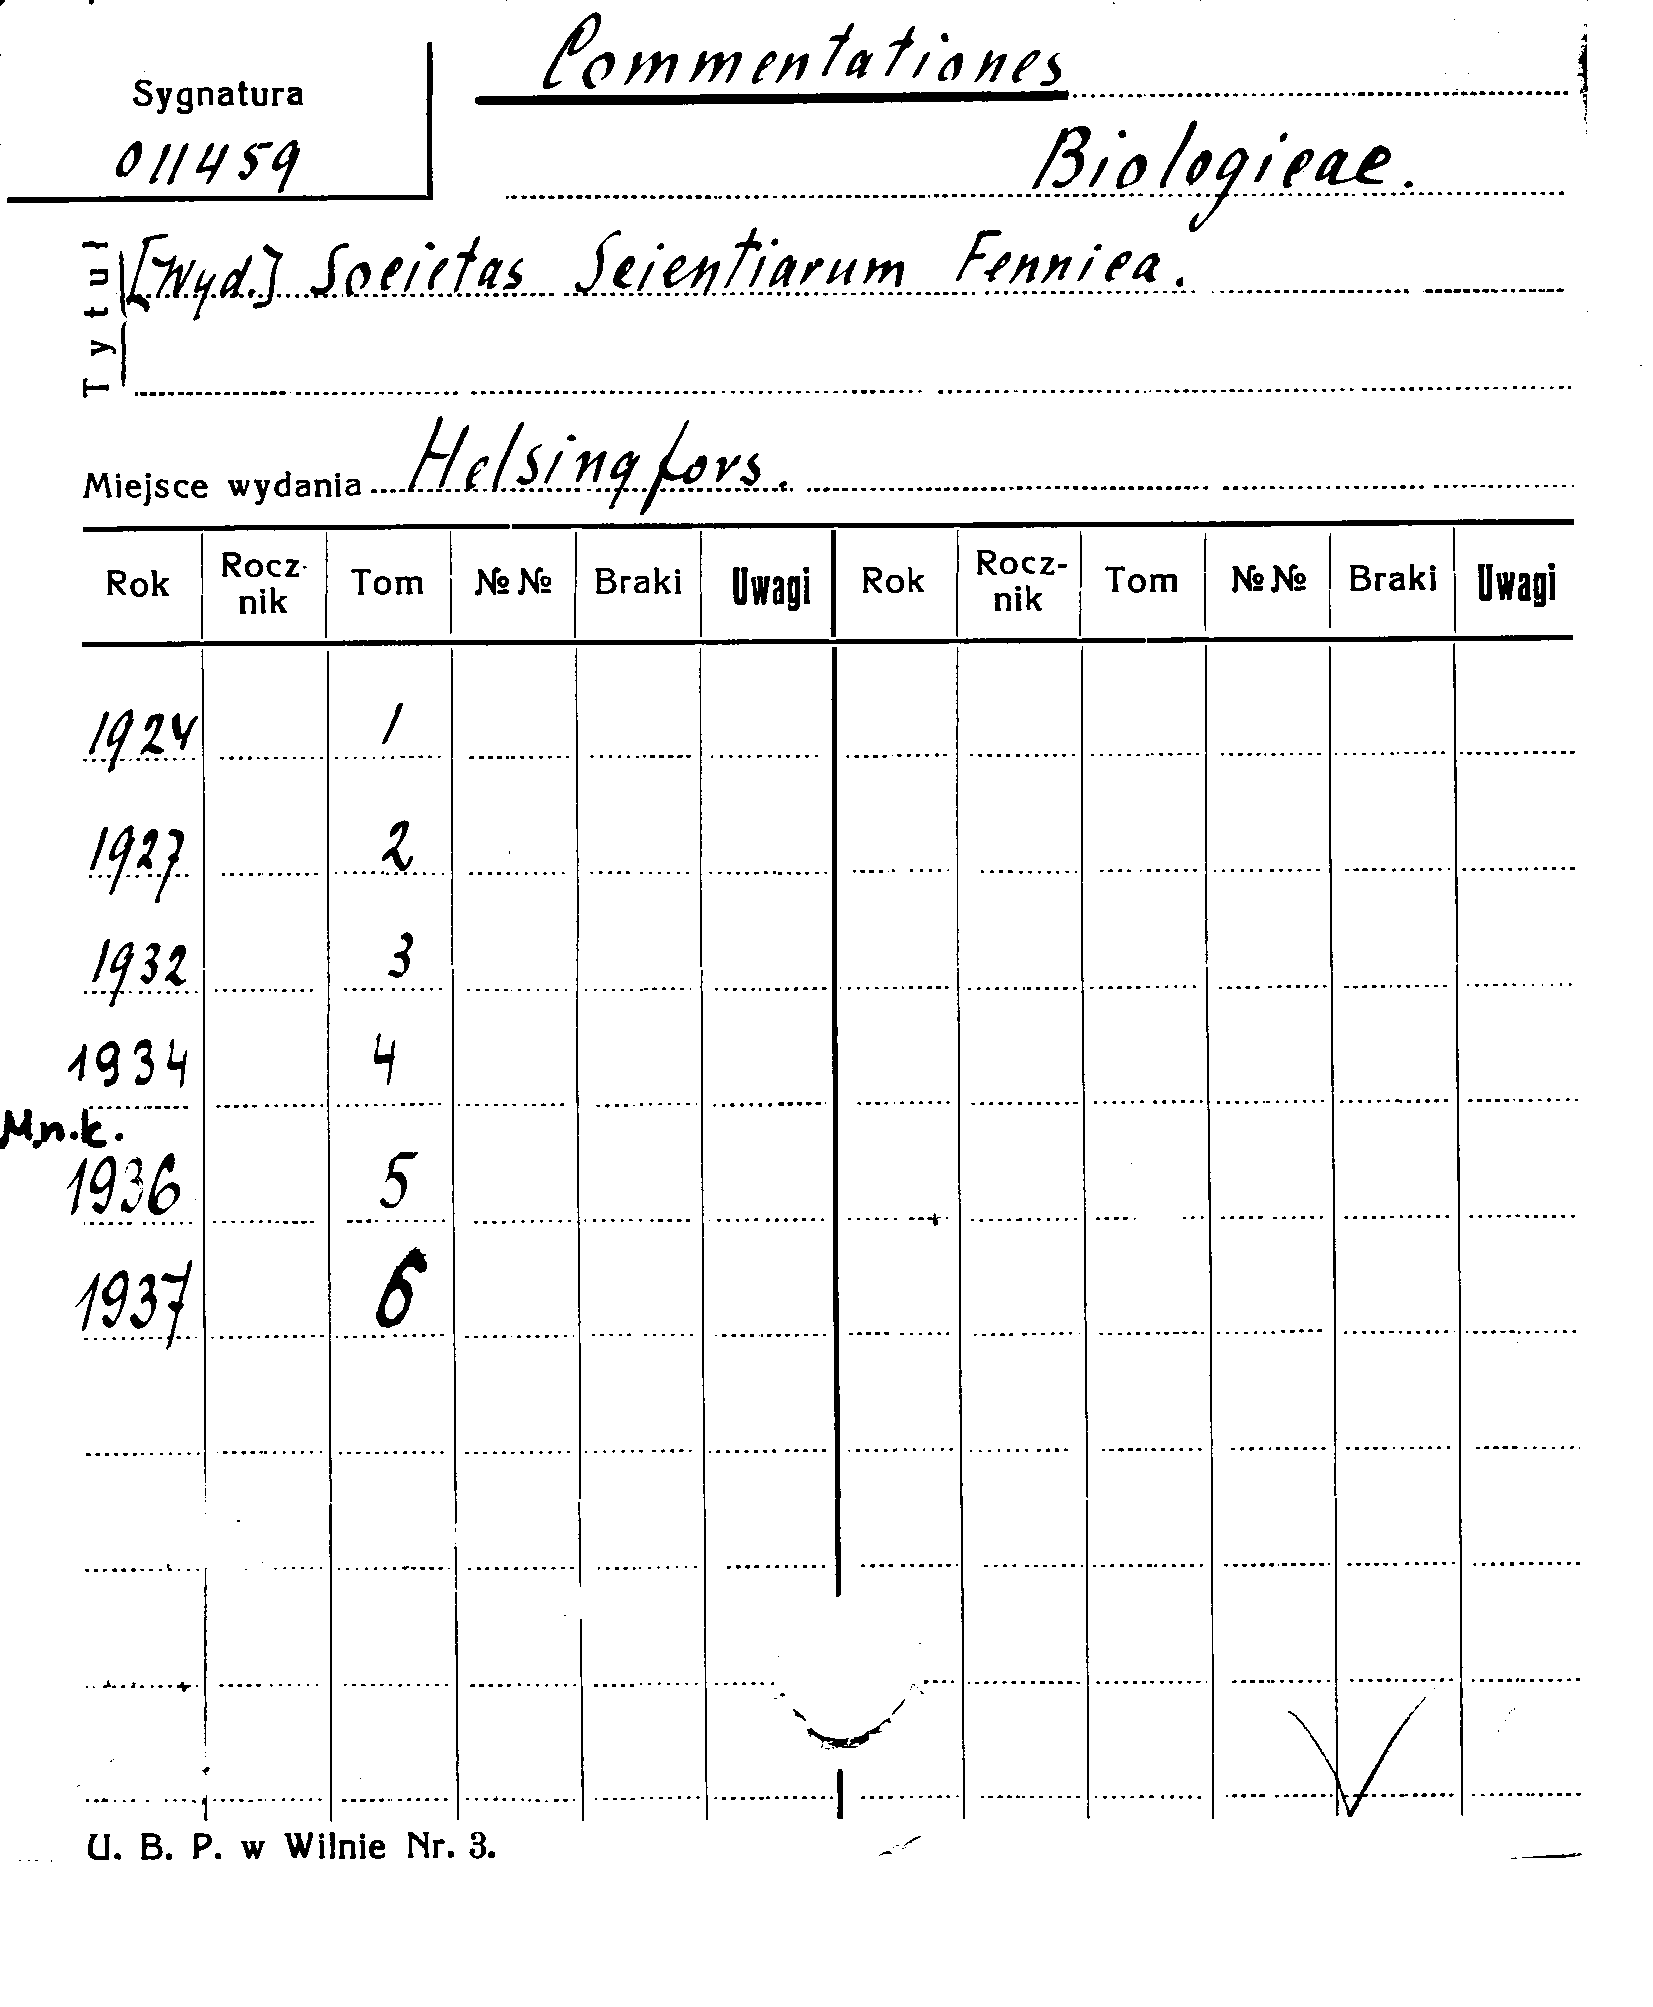 Commentationes
Sygnatura
011459
Biologicae.
Tytuł
[Wyd.] Societas Scientiarum Fennica.
Miejsce wydania Helsingfors.
Rok Rocz-nik Tom №№ Braki Uwagi Rok Rocz-nik Tom №№ Braki Uwagi
1924 1
1927 2
1932 3
1934 4
M.n.k.
1936 5
1937 6
U. B. P. w Wilnie Nr. 3.